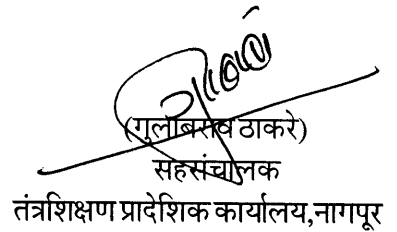 (गुलाबराव ठाकरे)
सहसंचालक
तंत्रशिक्षण प्रादेशिक कार्यालय,नागपूर